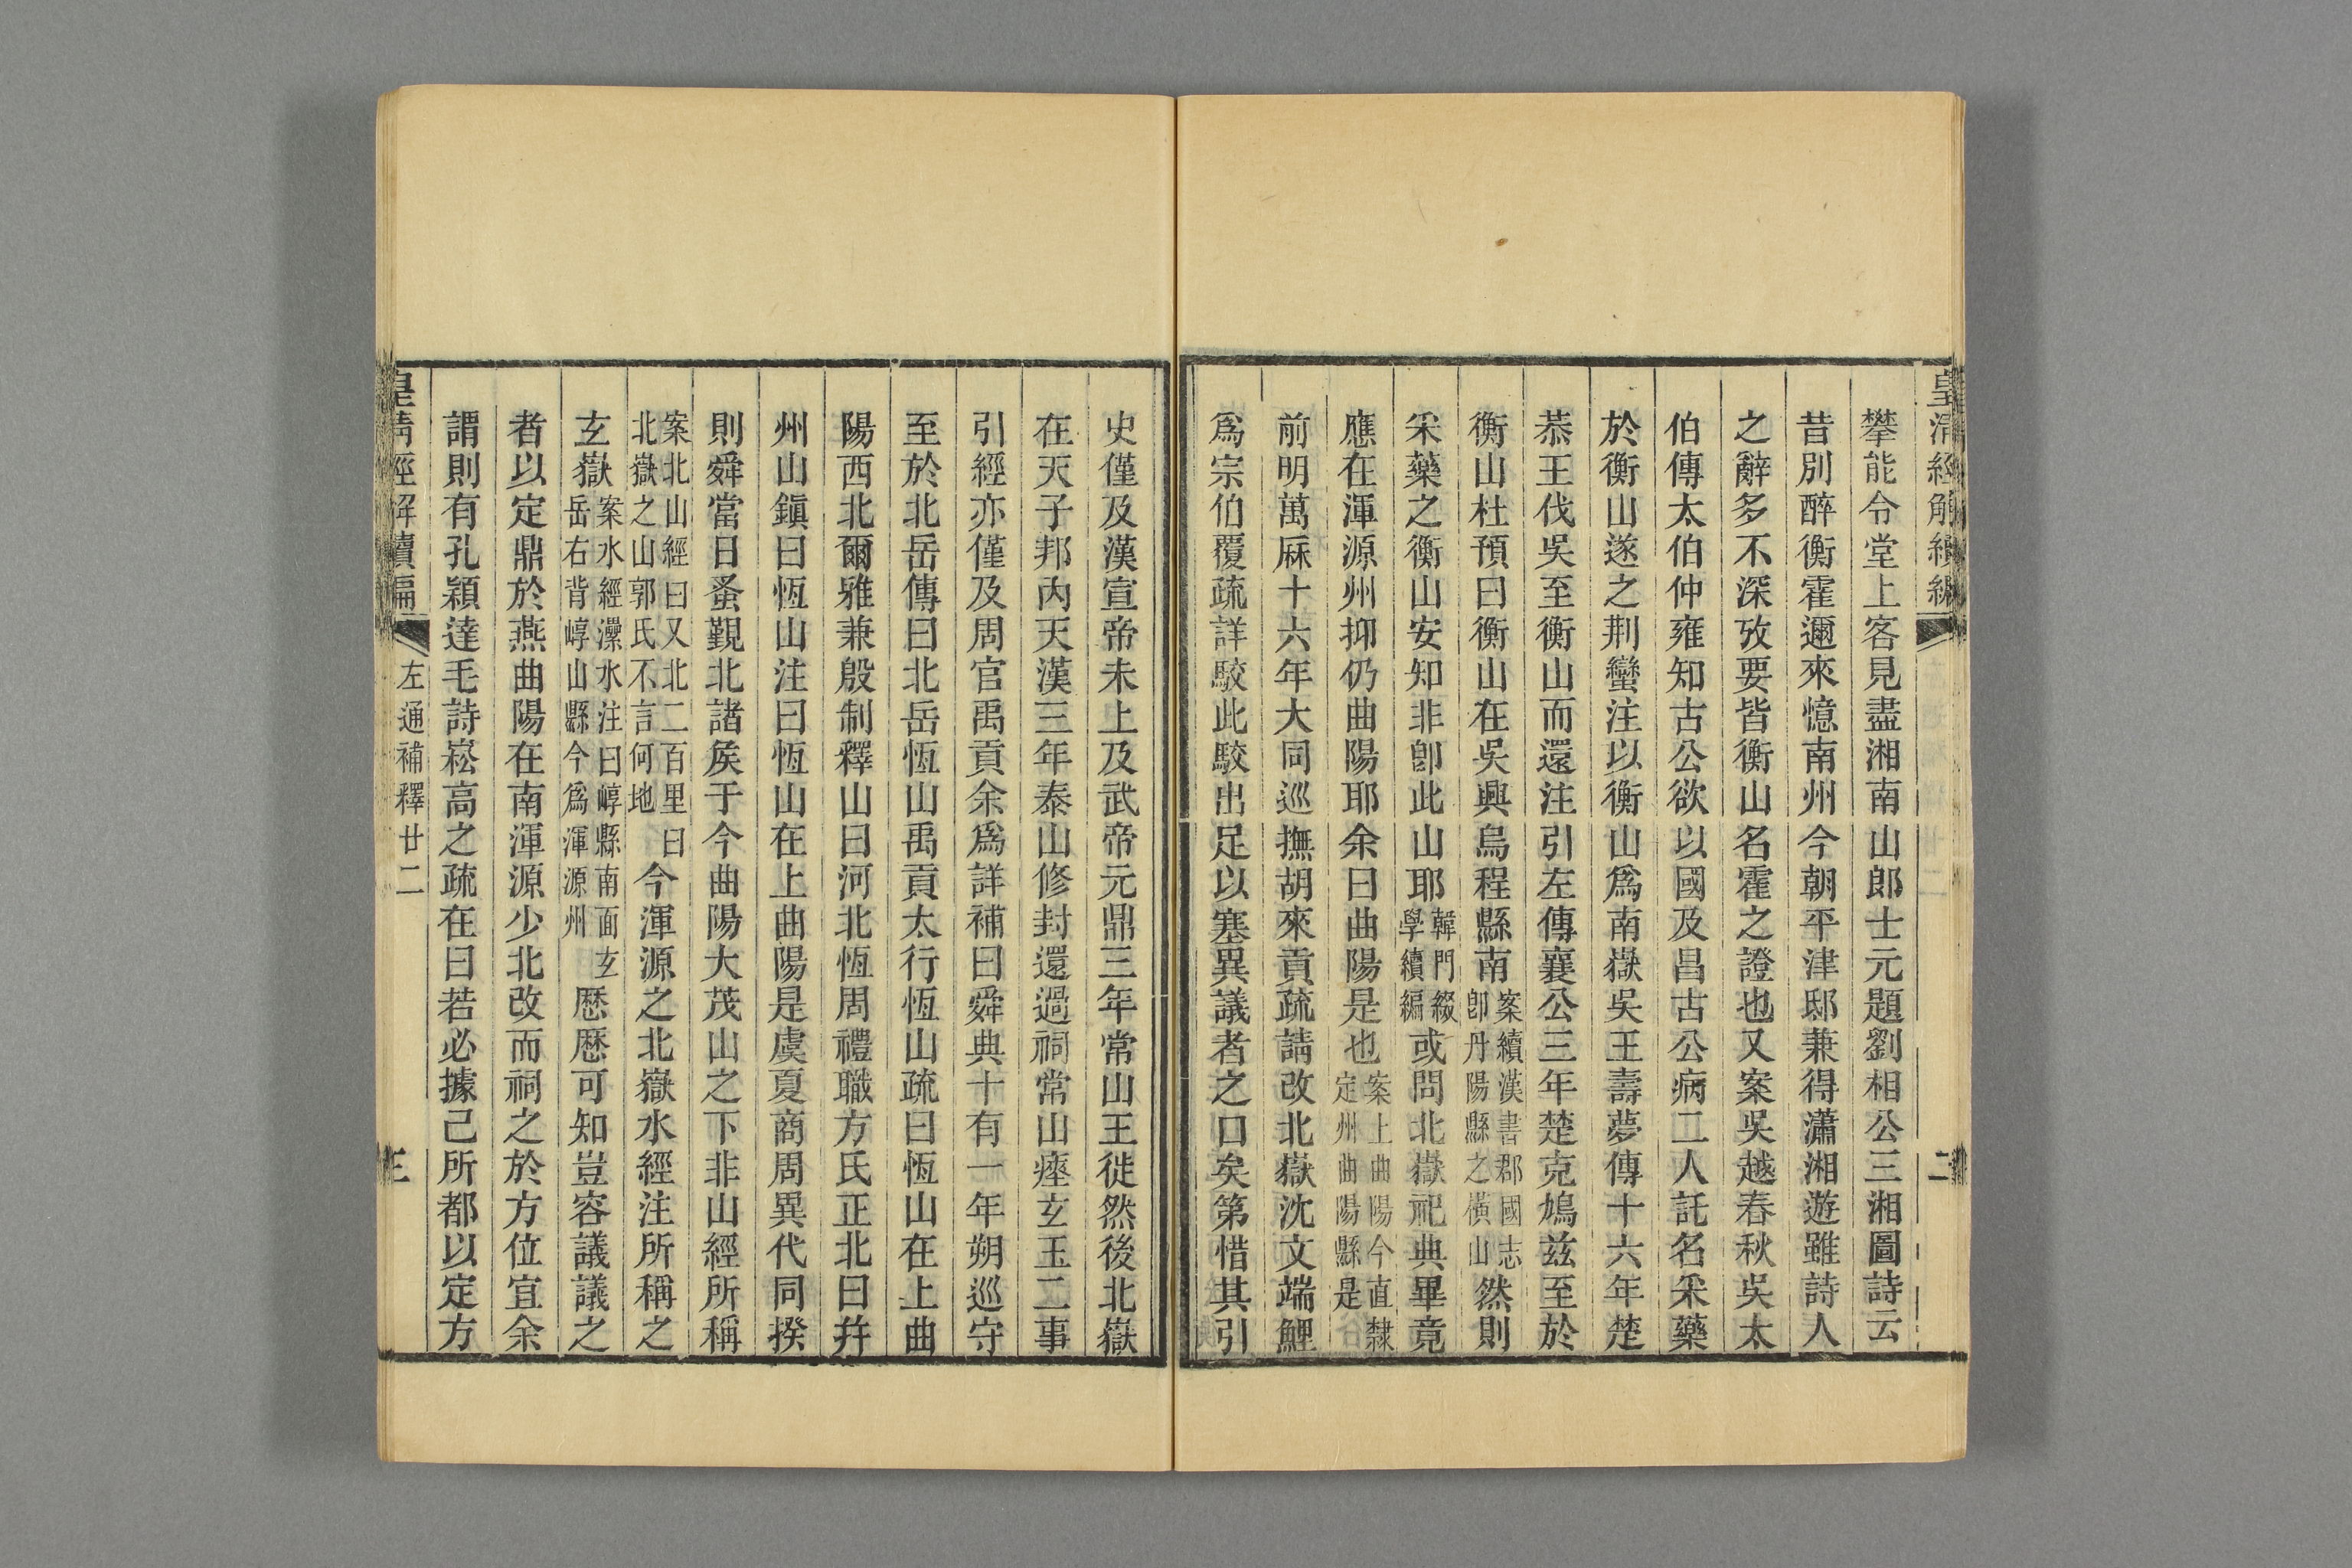 皇清經解續編
二
攀能令堂上客見盡湘南山郎士元題劉相公三湘圖詩云
昔別醉衡霍邇來憶南州今朝平津邸兼得瀟湘遊雖詩人
之辭多不深攷要皆衡山名霍之證也又案吳越春秋吳太
伯傳太伯仲雍知古公欲以國及昌古公病二人託名采藥
於衡山遂之荆蠻注以衡山爲南嶽吳王壽夢傳十六年楚
恭王伐吳至衡山而還注引左傳襄公三年楚克鳩茲至於
衡山杜預曰衡山在吳興烏程縣南案續漢書郡國志卽丹陽縣之橫山然則
采藥之衡山安知非卽此山耶韓門綴學續編或問北嶽祀典畢竟
應在渾源州抑仍曲陽耶余曰曲陽是也案上曲陽今直隸定州曲陽縣是
前明萬厤十六年大同巡撫胡來貢疏請改北嶽沈文端鯉
爲宗伯覆疏詳駮此駮出足以塞異議者之口矣第惜其引
史僅及漢宣帝未上及武帝元鼎三年常山王徙然後北嶽
在天子邦內天漢三年泰山修封還過祠常山瘞玄玉二事
引經亦僅及周官禹貢余爲詳補曰舜典十有一年朔巡守
至於北岳傳曰北岳恆山禹貢太行恆山疏曰恆山在上曲
陽西北爾雅兼殷制釋山曰河北恆周禮職方氏正北曰幷
州山鎭曰恆山注曰恆山在上曲陽是虞夏商周異代同揆
則舜當日蚤覲北諸矦于今曲陽大茂山之下非山經所稱
案北山經曰又北二百里曰北嶽之山郭氏不言何地今渾源之北嶽水經注所稱之
玄嶽案水經㶟水注曰崞縣南面玄岳右背崞山縣今爲渾源州厯厯可知豈容議議之
者以定鼎於燕曲陽在南渾源少北改而祠之於方位宜余
謂則有孔穎達毛詩崧高之疏在曰若必據己所都以定方
皇淸經解續編
左通補釋廿二
三